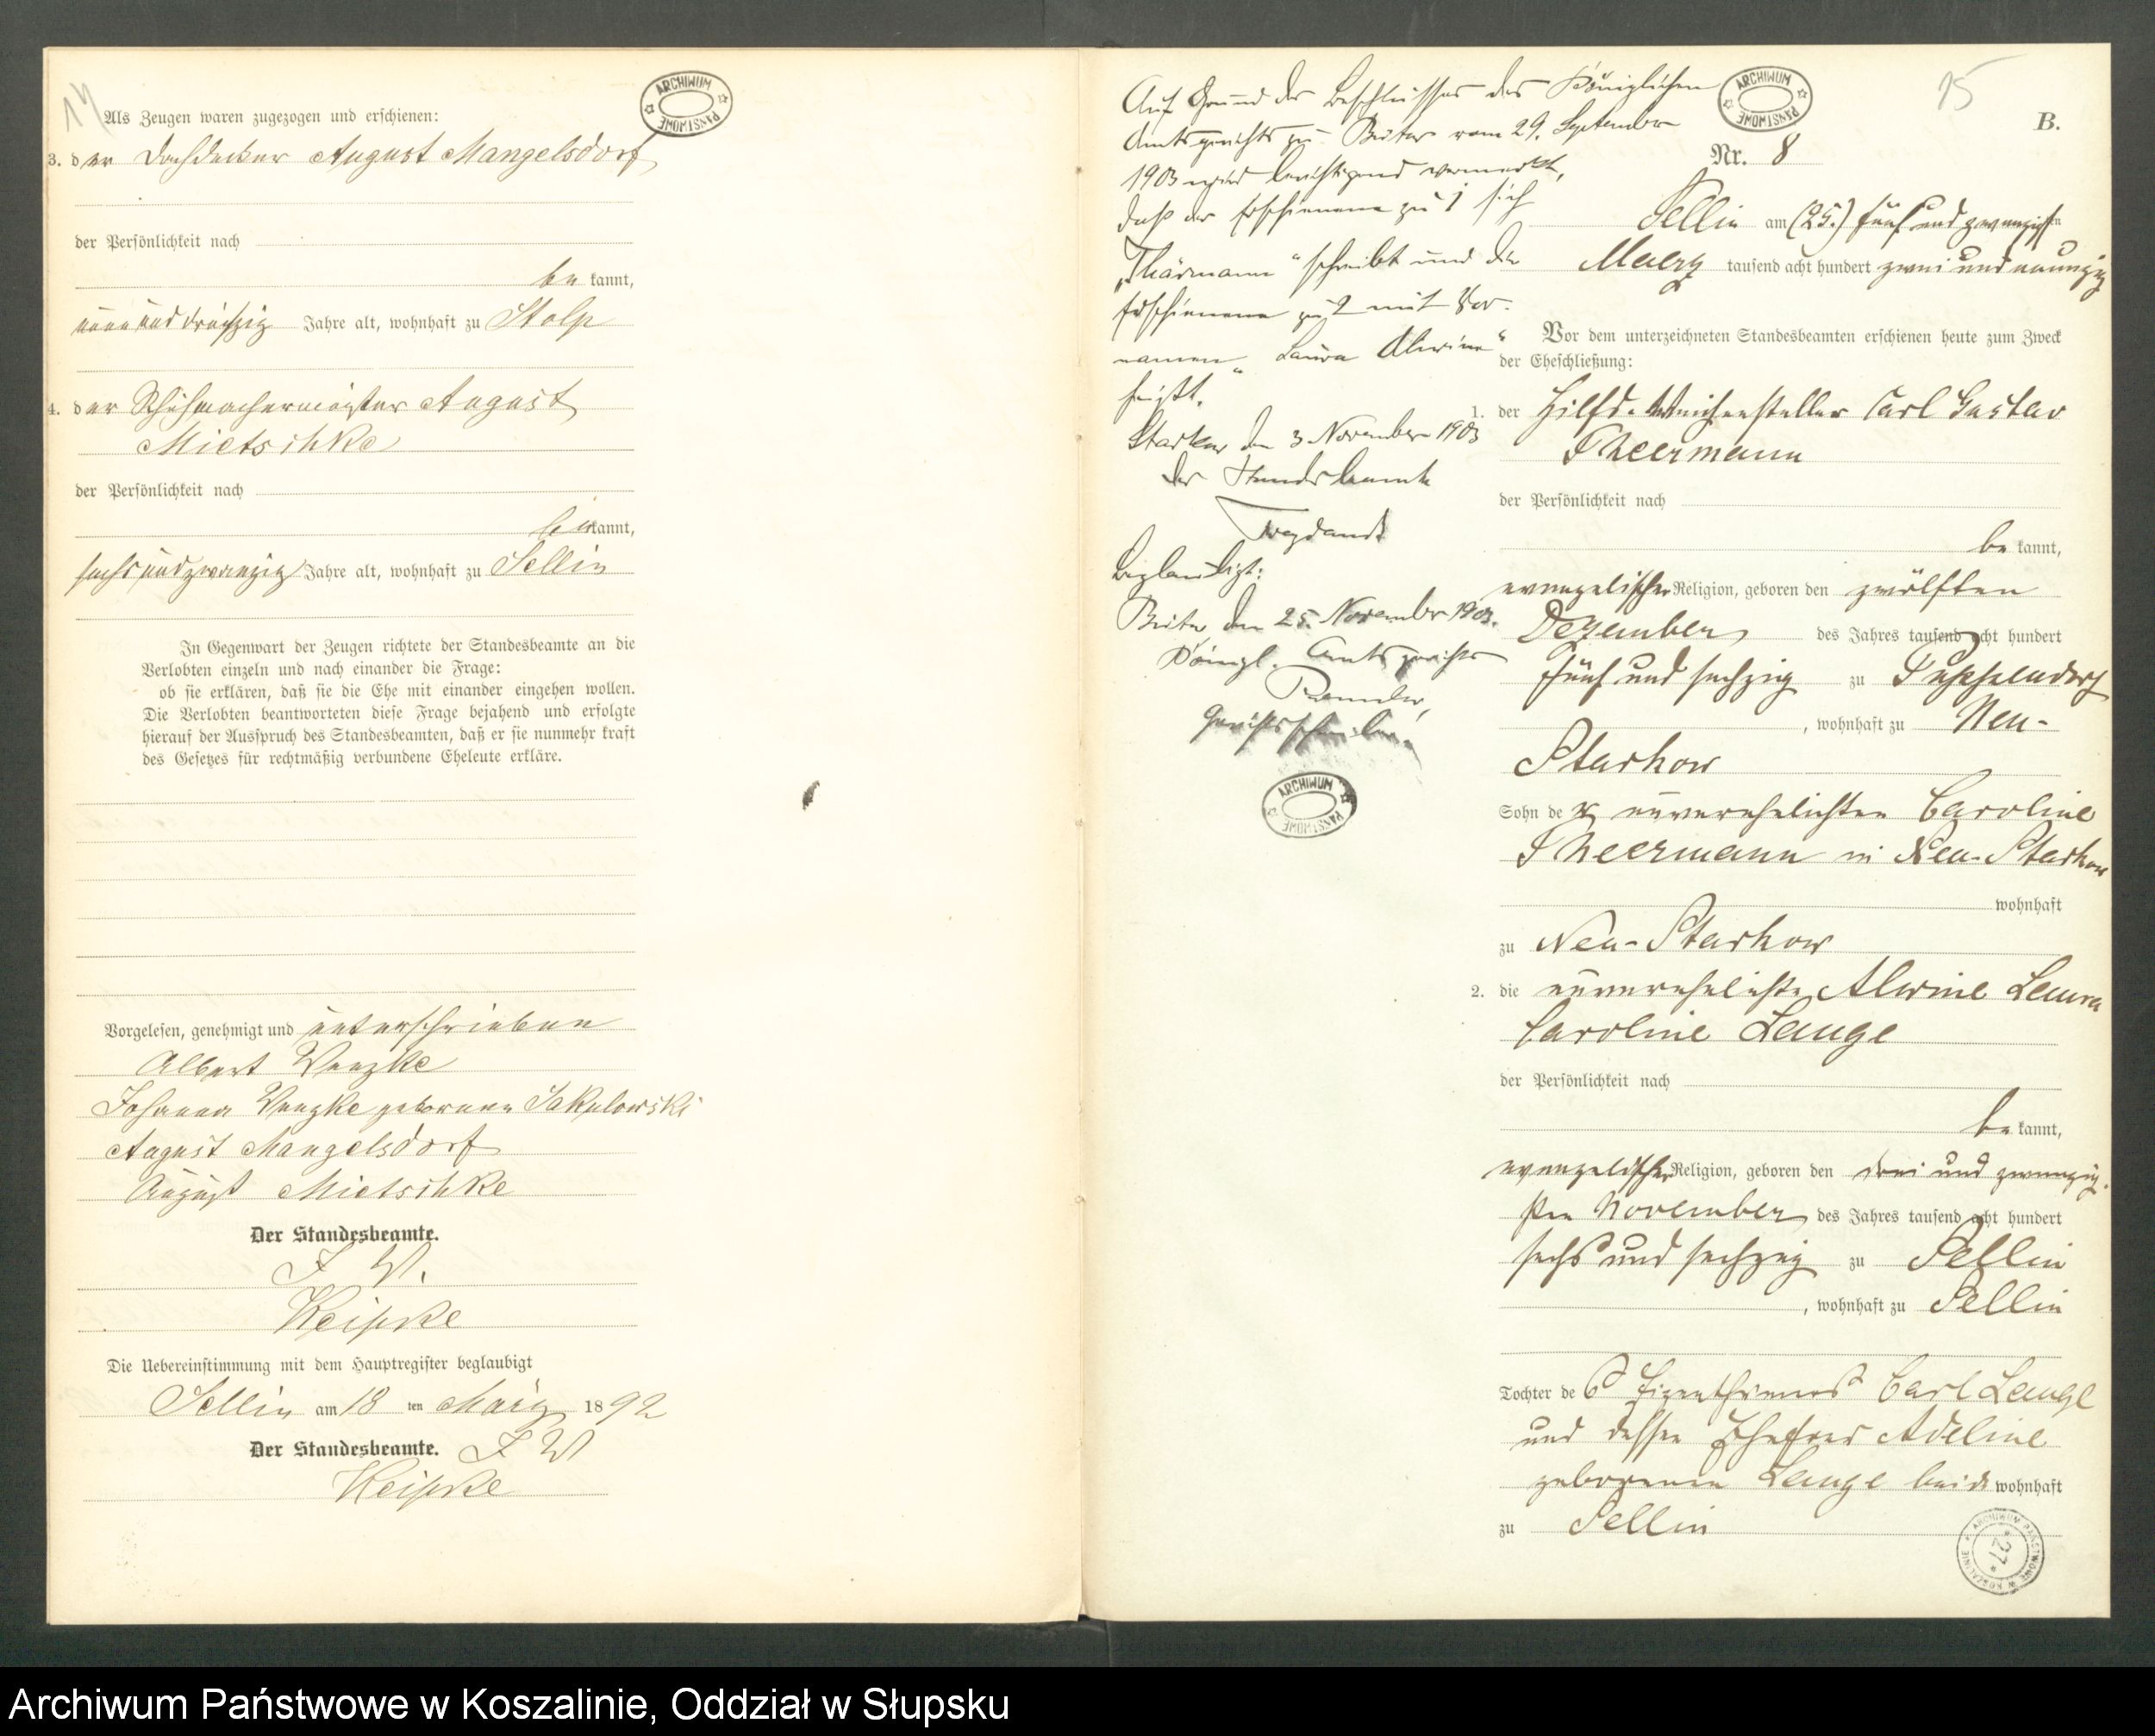 14
Als Zeugen waren zugezogen und erschienen:
3. der Dachdecker August Mangelsdorf
der Persönlichkeit nach
be kannt,
neun und dreißig Jahre alt, wohnhaft zu Stolp
4. der Schuhmachermeister August
Mietschke
der Persönlichkeit nach
be kannt,
sechs und zwanzig Jahre alt, wohnhaft zu Sellin
In Gegenwart der Zeugen richtete der Standesbeamte an die
Verlobten einzeln und nach einander die Frage:
ob sie erklären, daß sie die Ehe mit einander eingehen wollen.
Die Verlobten beantworteten diese Frage bejahend und erfolgte
hierauf der Ausspruch des Standesbeamten, daß er sie nunmehr kraft
des Gesetzes für rechtmäßig verbundene Eheleute erkläre.
Vorgelesen, genehmigt und unterschrieben
Albert Venzke
Johanna Venzke geborene Jakulowski
August Mangelsdorf
August Mietschke
Der Standesbeamte.
I. V.
Keipke
Die Uebereinstimmung mit dem Hauptregister beglaubigt
Sellin am 18 ten März 1892
Der Standesbeamte. I V
Keipke
ARCHIWUM PAŃSTWOWE
Auf Grund des Beschlusses des Königlichen
Amtsgerichts zu Bütow vom 29. September
1903 wird berichtigend vermerkt,
daß der Erschienene zu 1 sich
„Thärmann“ schreibt und die
Erschienene zu 2 mit Vor-
namen „Laura Alwine“
heißt.
Starkow den 3 November 1903
Der Standesbeamte
Beglaubigt:
Bütow, den 25. November 1903.
Königl. Amtsgericht
Gerichtsschreiber.
ARCHIWUM PAŃSTWOWE
ARCHIWUM PAŃSTWOWE
15
B.
Nr. 8
Sellin am (25.) fünf und zwanzigsten
Maerz tausend acht hundert zwei und neunzig
Vor dem unterzeichneten Standesbeamten erschienen heute zum Zweck
der Eheschließung:
1. der Hilfs-Weichensteller Carl Gustav
Theermann
der Persönlichkeit nach
be kannt,
evangelischer Religion, geboren den zwölften
Dezember des Jahres tausend acht hundert
fünf und sechzig zu
, wohnhaft zu Neu-
Starkow
Sohn der unverehelichten Caroline
Theermann in Neu-Starkow
wohnhaft
zu Neu-Starkow
2. die unverehelichte Alwine Laura
Caroline Lange
der Persönlichkeit nach
be kannt,
evangelischer Religion, geboren den drei und zwanzig-
sten November des Jahres tausend acht hundert
sechs und sechzig zu Sellin
, wohnhaft zu Sellin
Tochter des Eigenthümers Carl Lange
und dessen Ehefrau Adeline
geborenen Lange beide wohnhaft
zu Sellin
ARCHIWUM PAŃSTWOWE W KOSZALINIE
* 27 *
Archiwum Państwowe w Koszalinie, Oddział w Słupsku